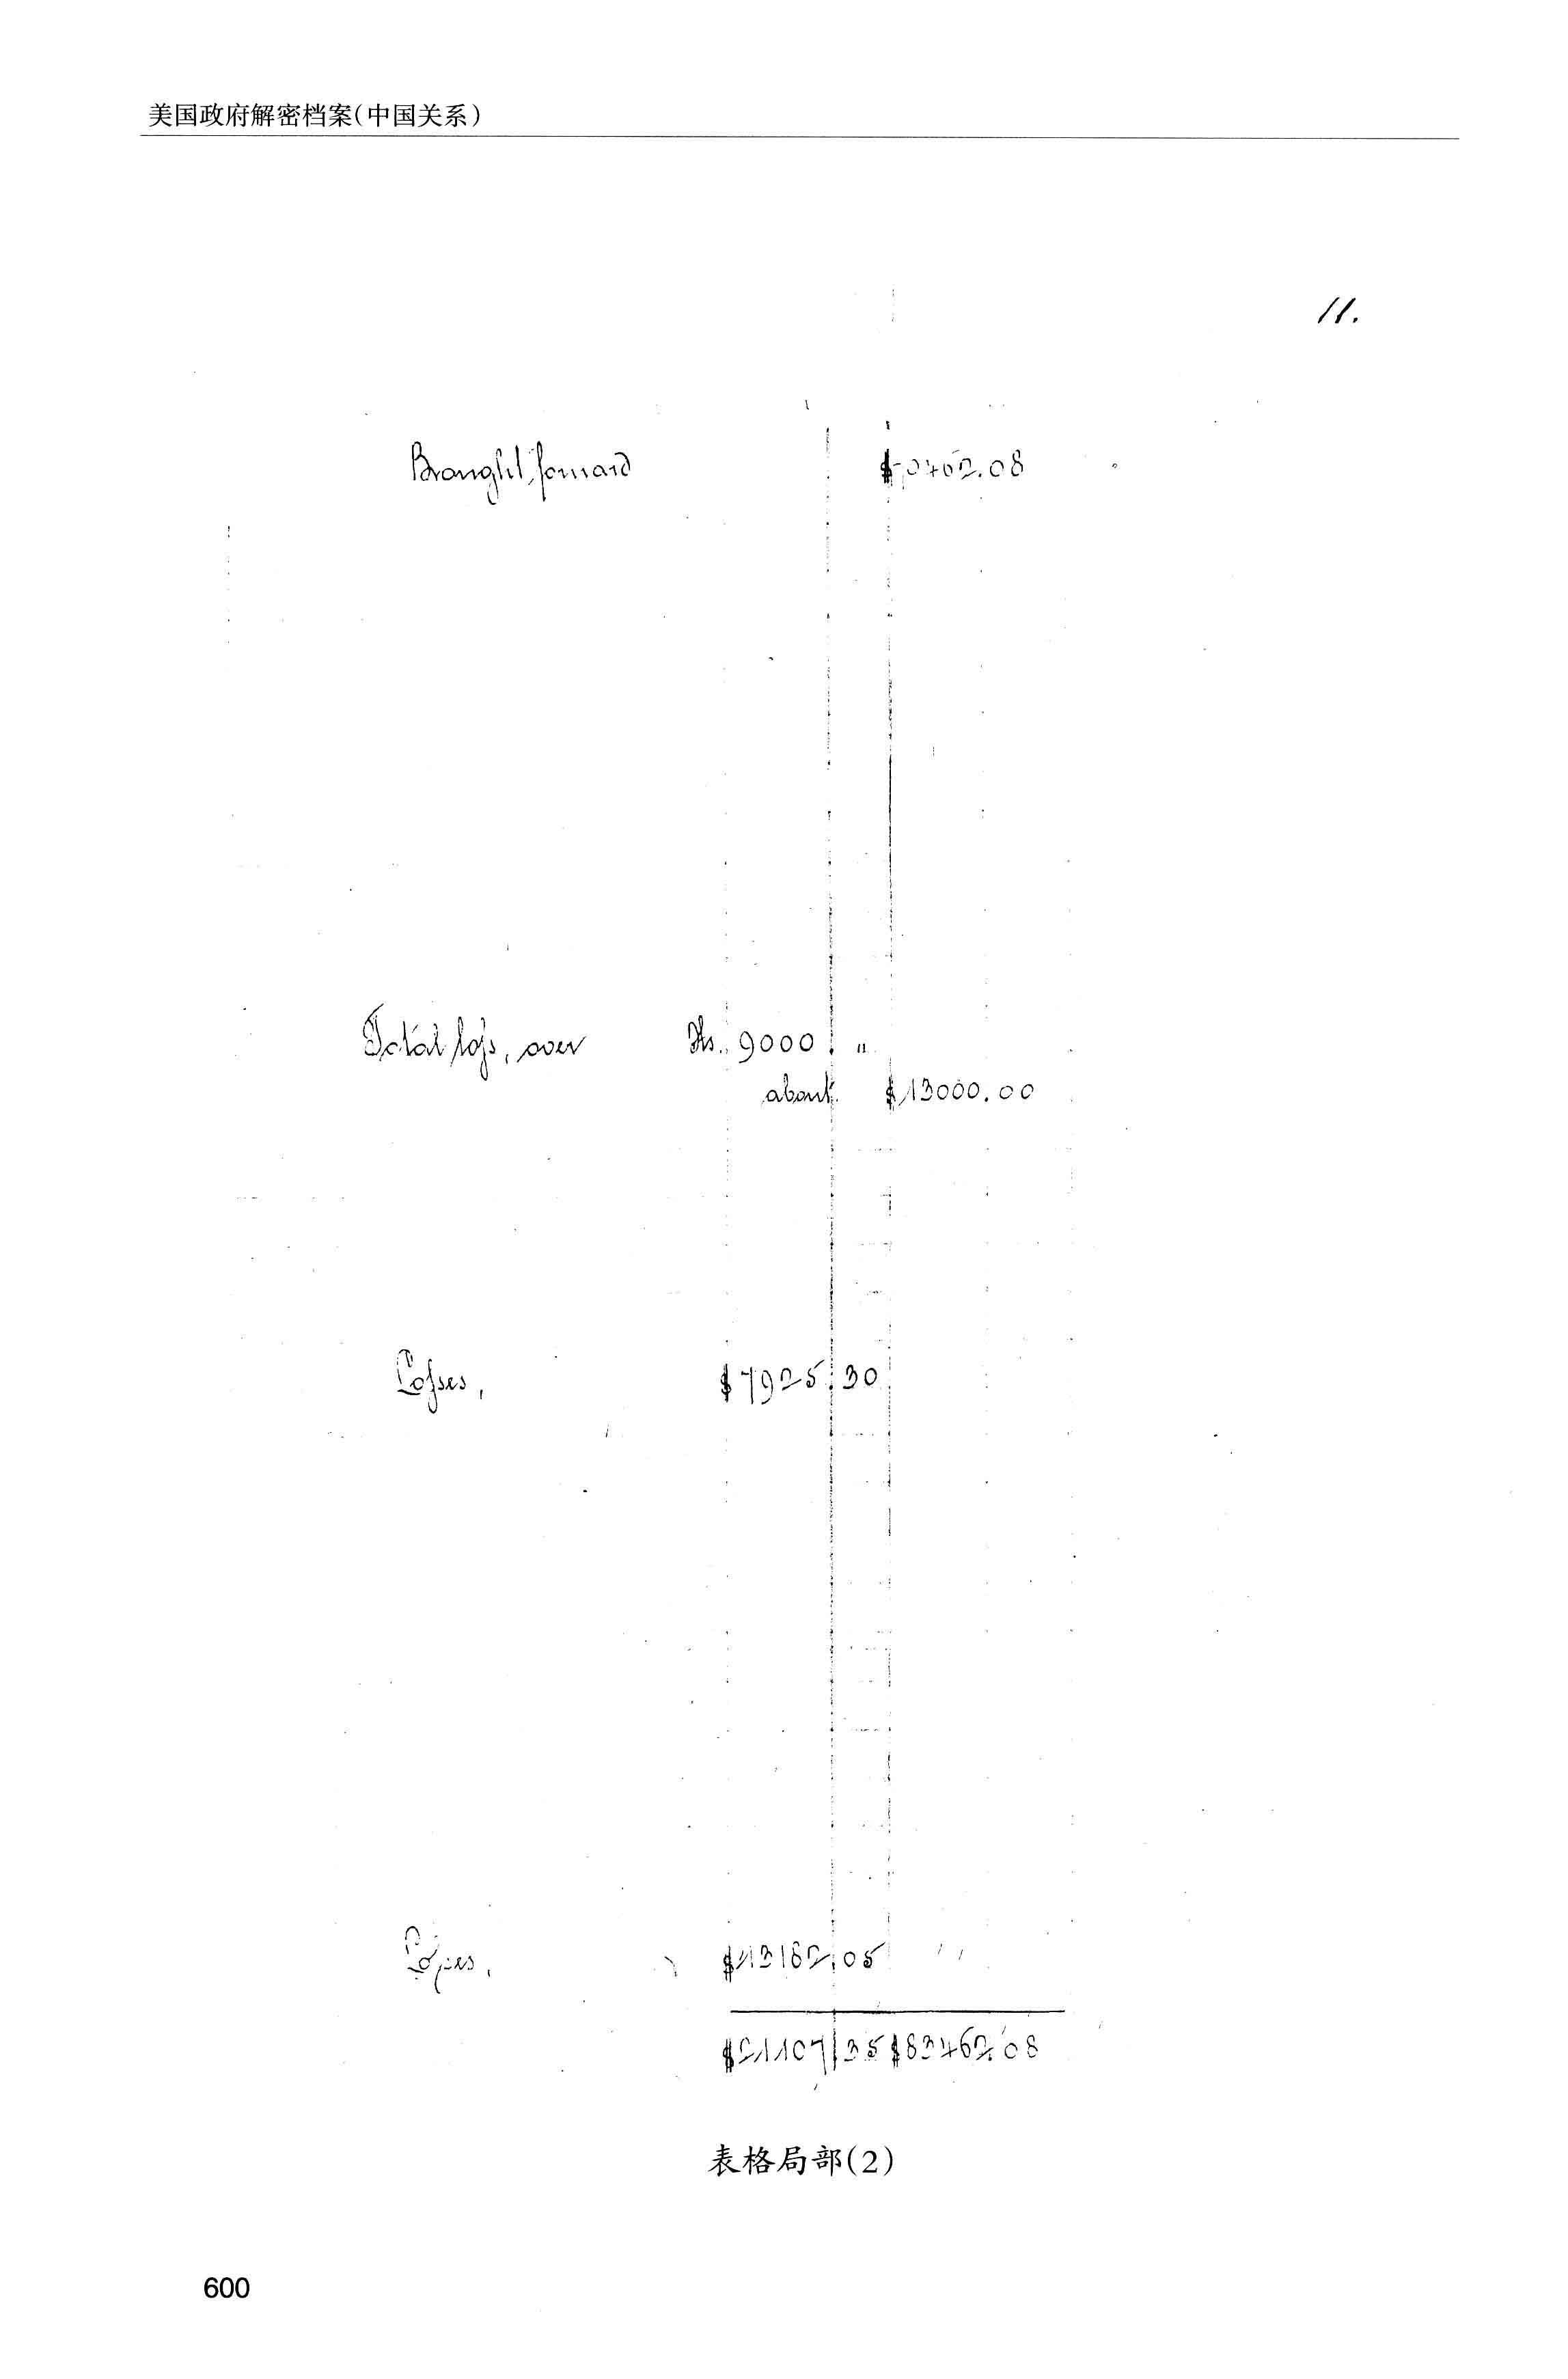 美国政府解密档案(中国关系)
11.
Brought forward
Total loss, over Tls. 9000 "
about $13000.00
Losses, $7925.30
Losses, $13182.05
$21107 35 $83462.08
表格局部(2)
600